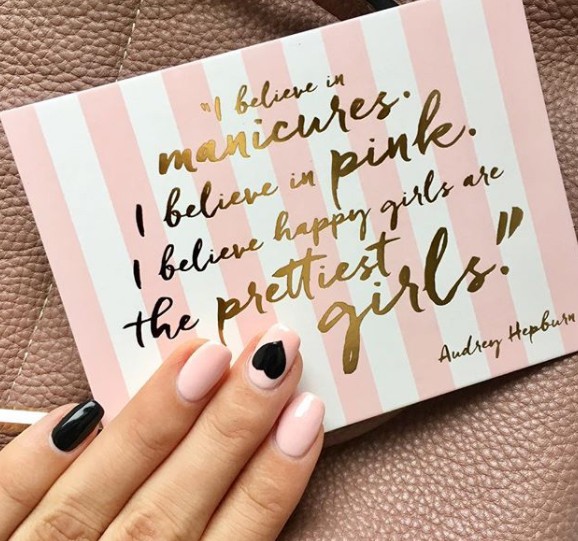 "I believe in
manicures.
I believe in pink.
I believe happy girls are
the prettiest
girls."
Audrey Hepburn